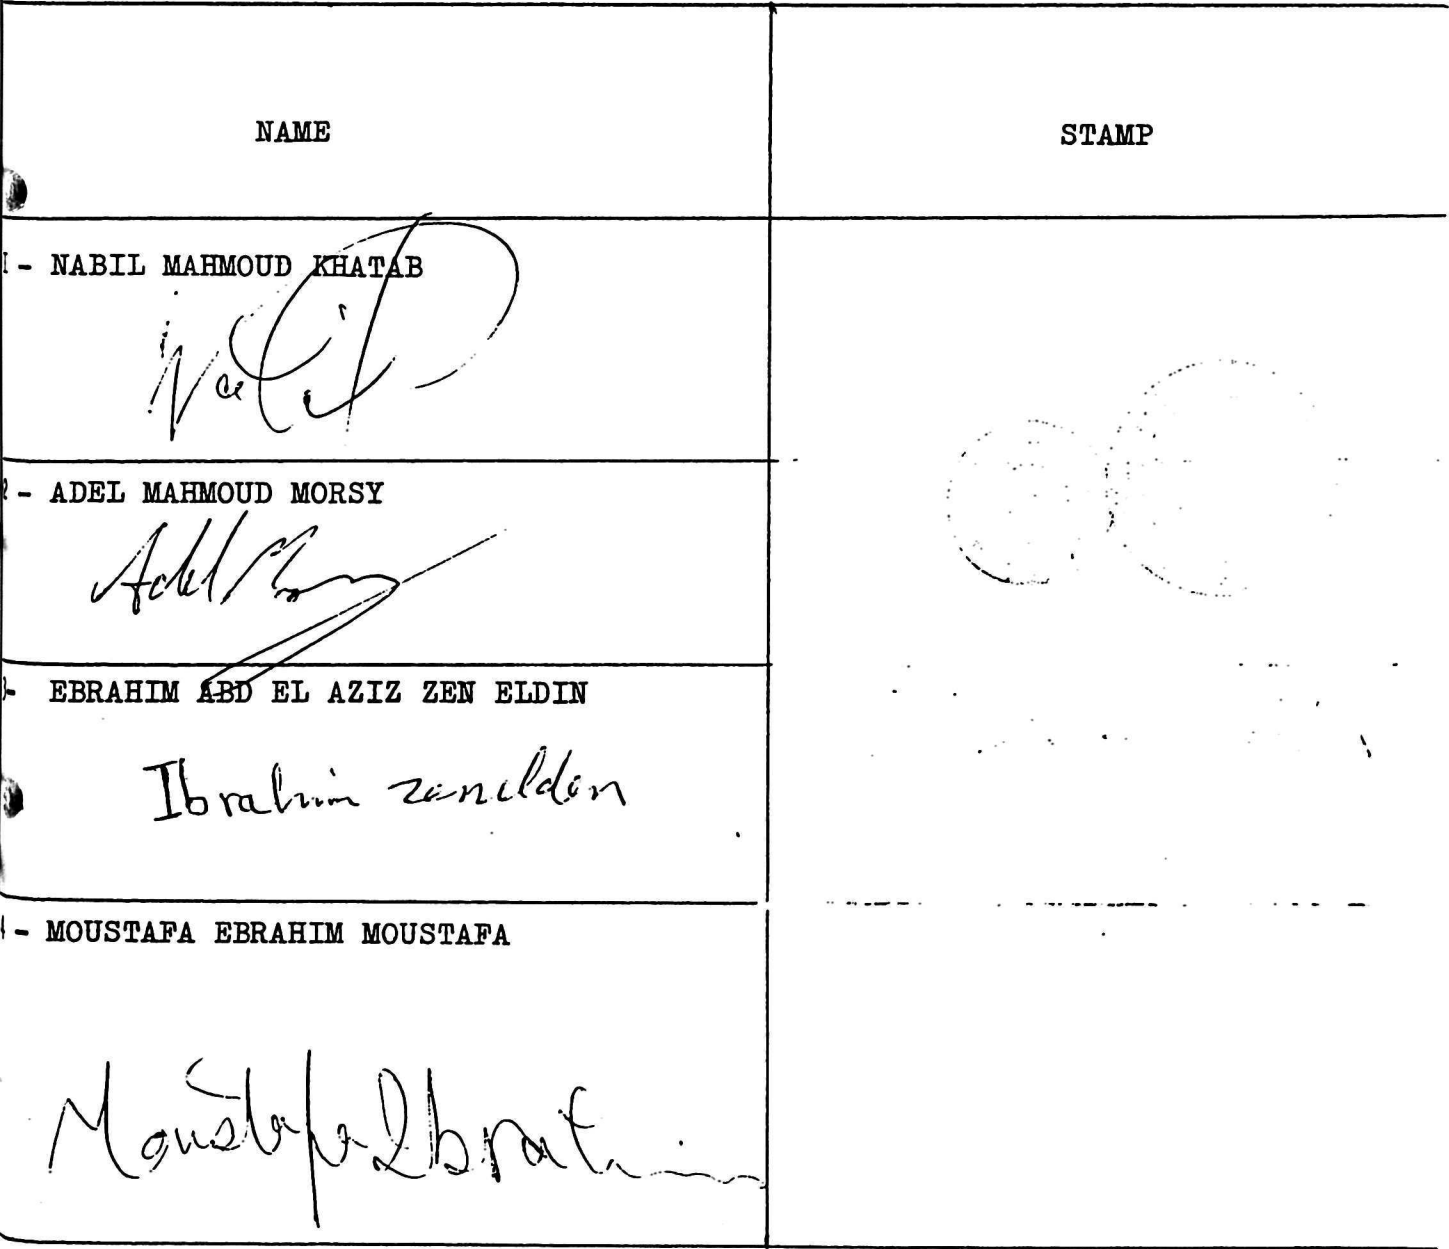 NAME
STAMP
1- NABIL MAHMOUD KHATAB
Nabil
2- ADEL MAHMOUD MORSY
Adel
3- EBRAHIM ABD EL AZIZ ZEN ELDIN
Ibrahim zeneldin
4- MOUSTAFA EBRAHIM MOUSTAFA
Moustafa Ibrahim